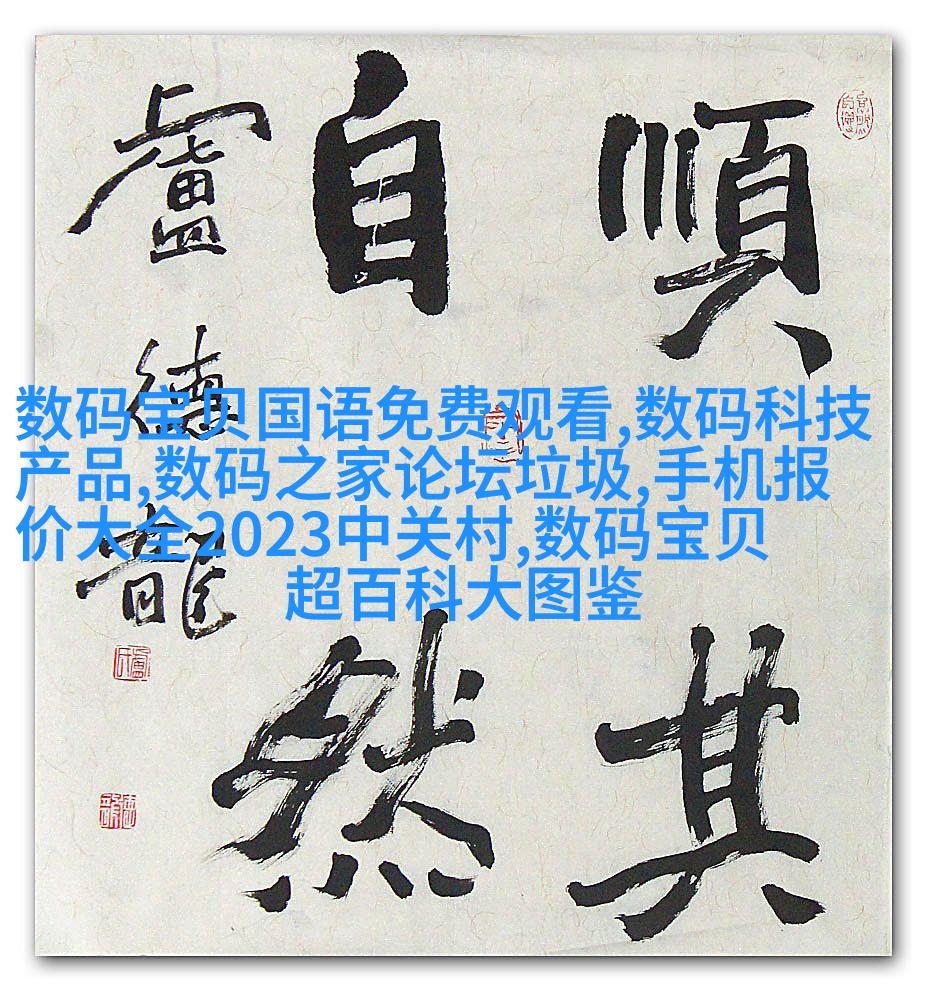 順其
自然
盧德龍
数码宝贝国语免费观看,数码科技
产品,数码之家论坛垃圾,手机报
价大全2023中关村,数码宝贝
超百科大图鉴